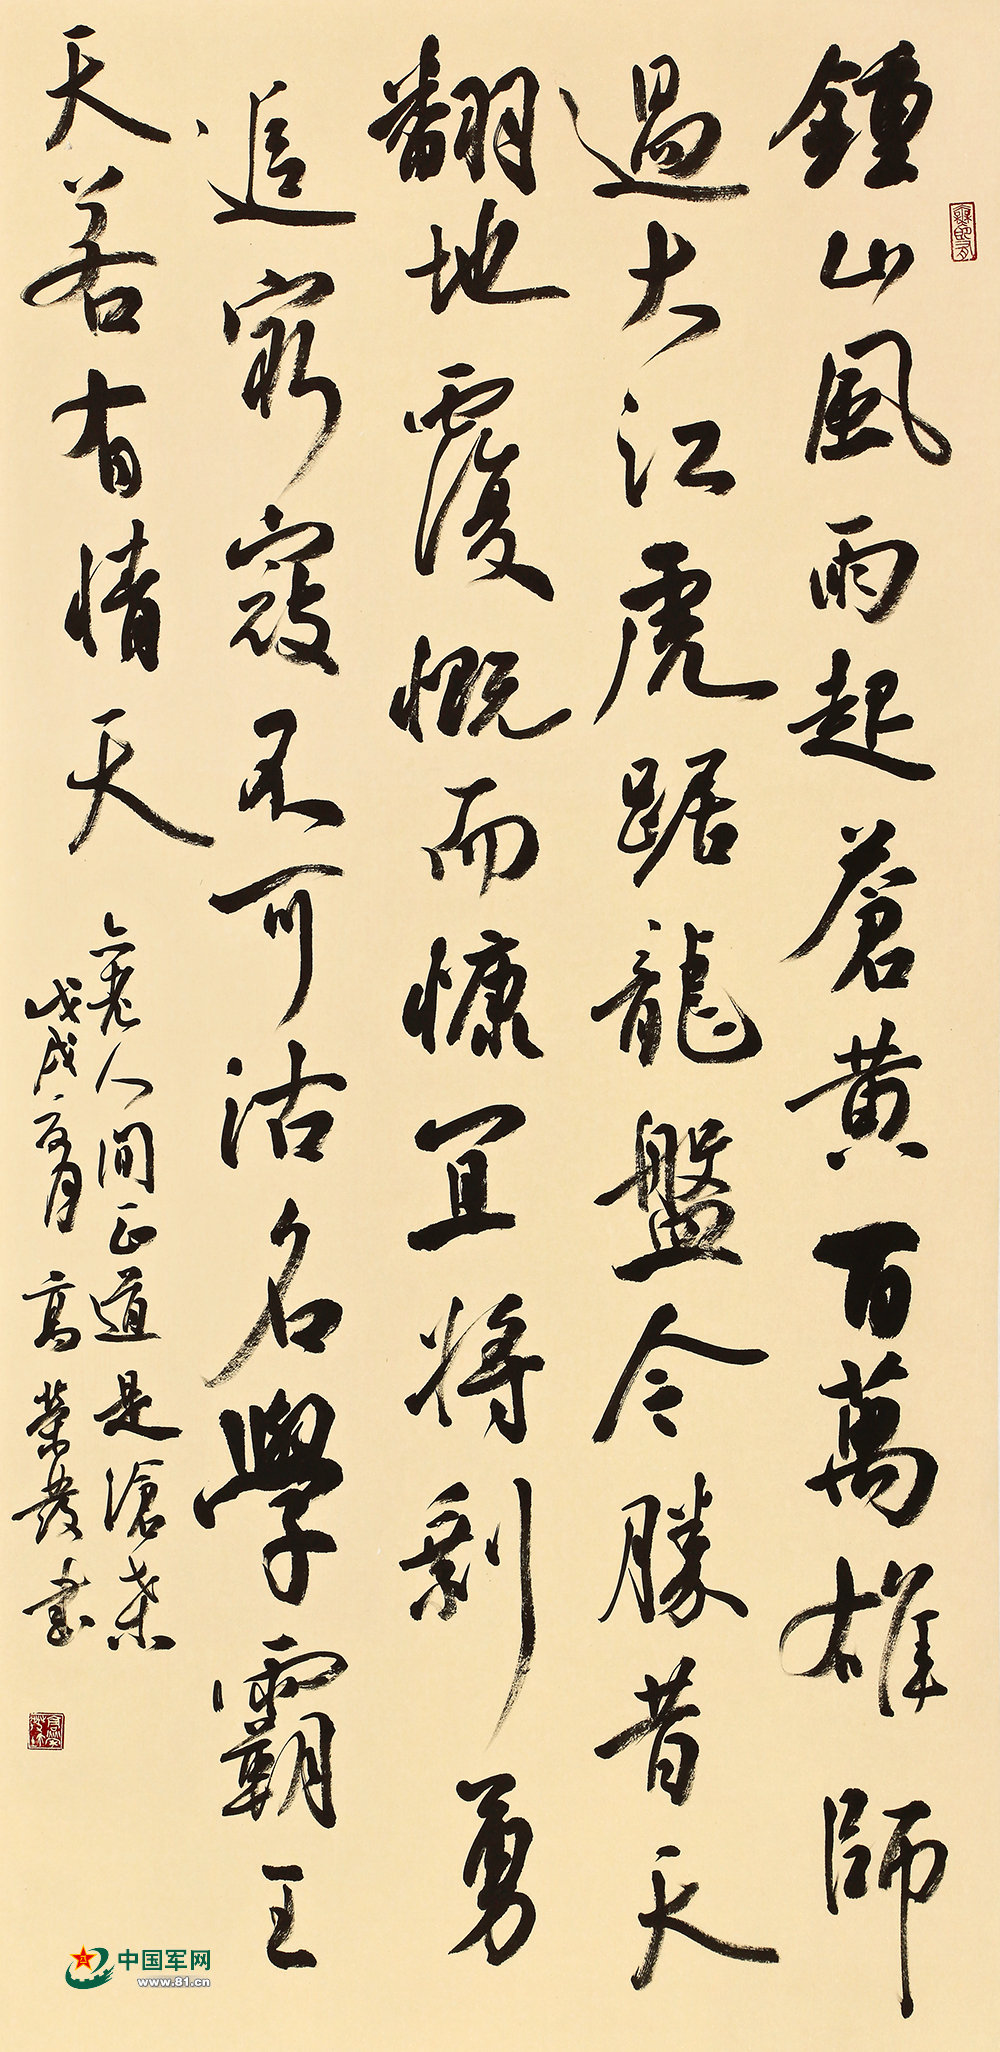 鍾山風雨起蒼黃百萬雄師
過大江虎踞龍盤今勝昔天
翻地覆慨而慷宜將剩勇
追窮寇不可沽名學霸王
天若有情天
亦老人間正道是滄桑
戊戌六月高榮發書
中国军网
www.81.cn